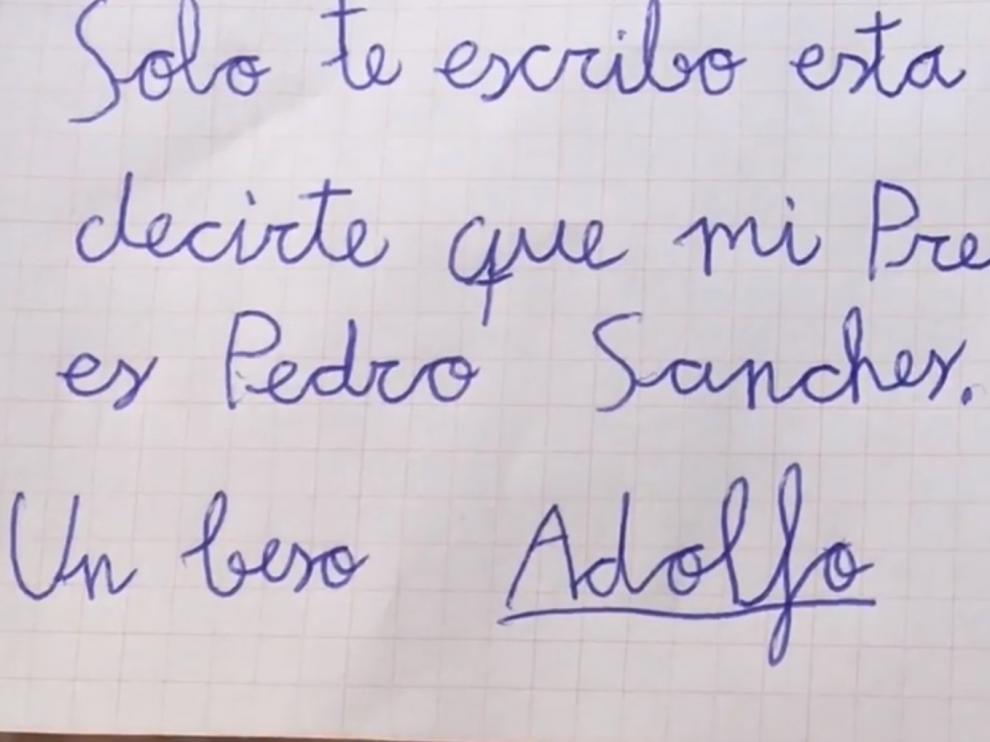 Solo te escribo esta
decirte que mi Pre
es Pedro Sanches.
Un beso Adolfo